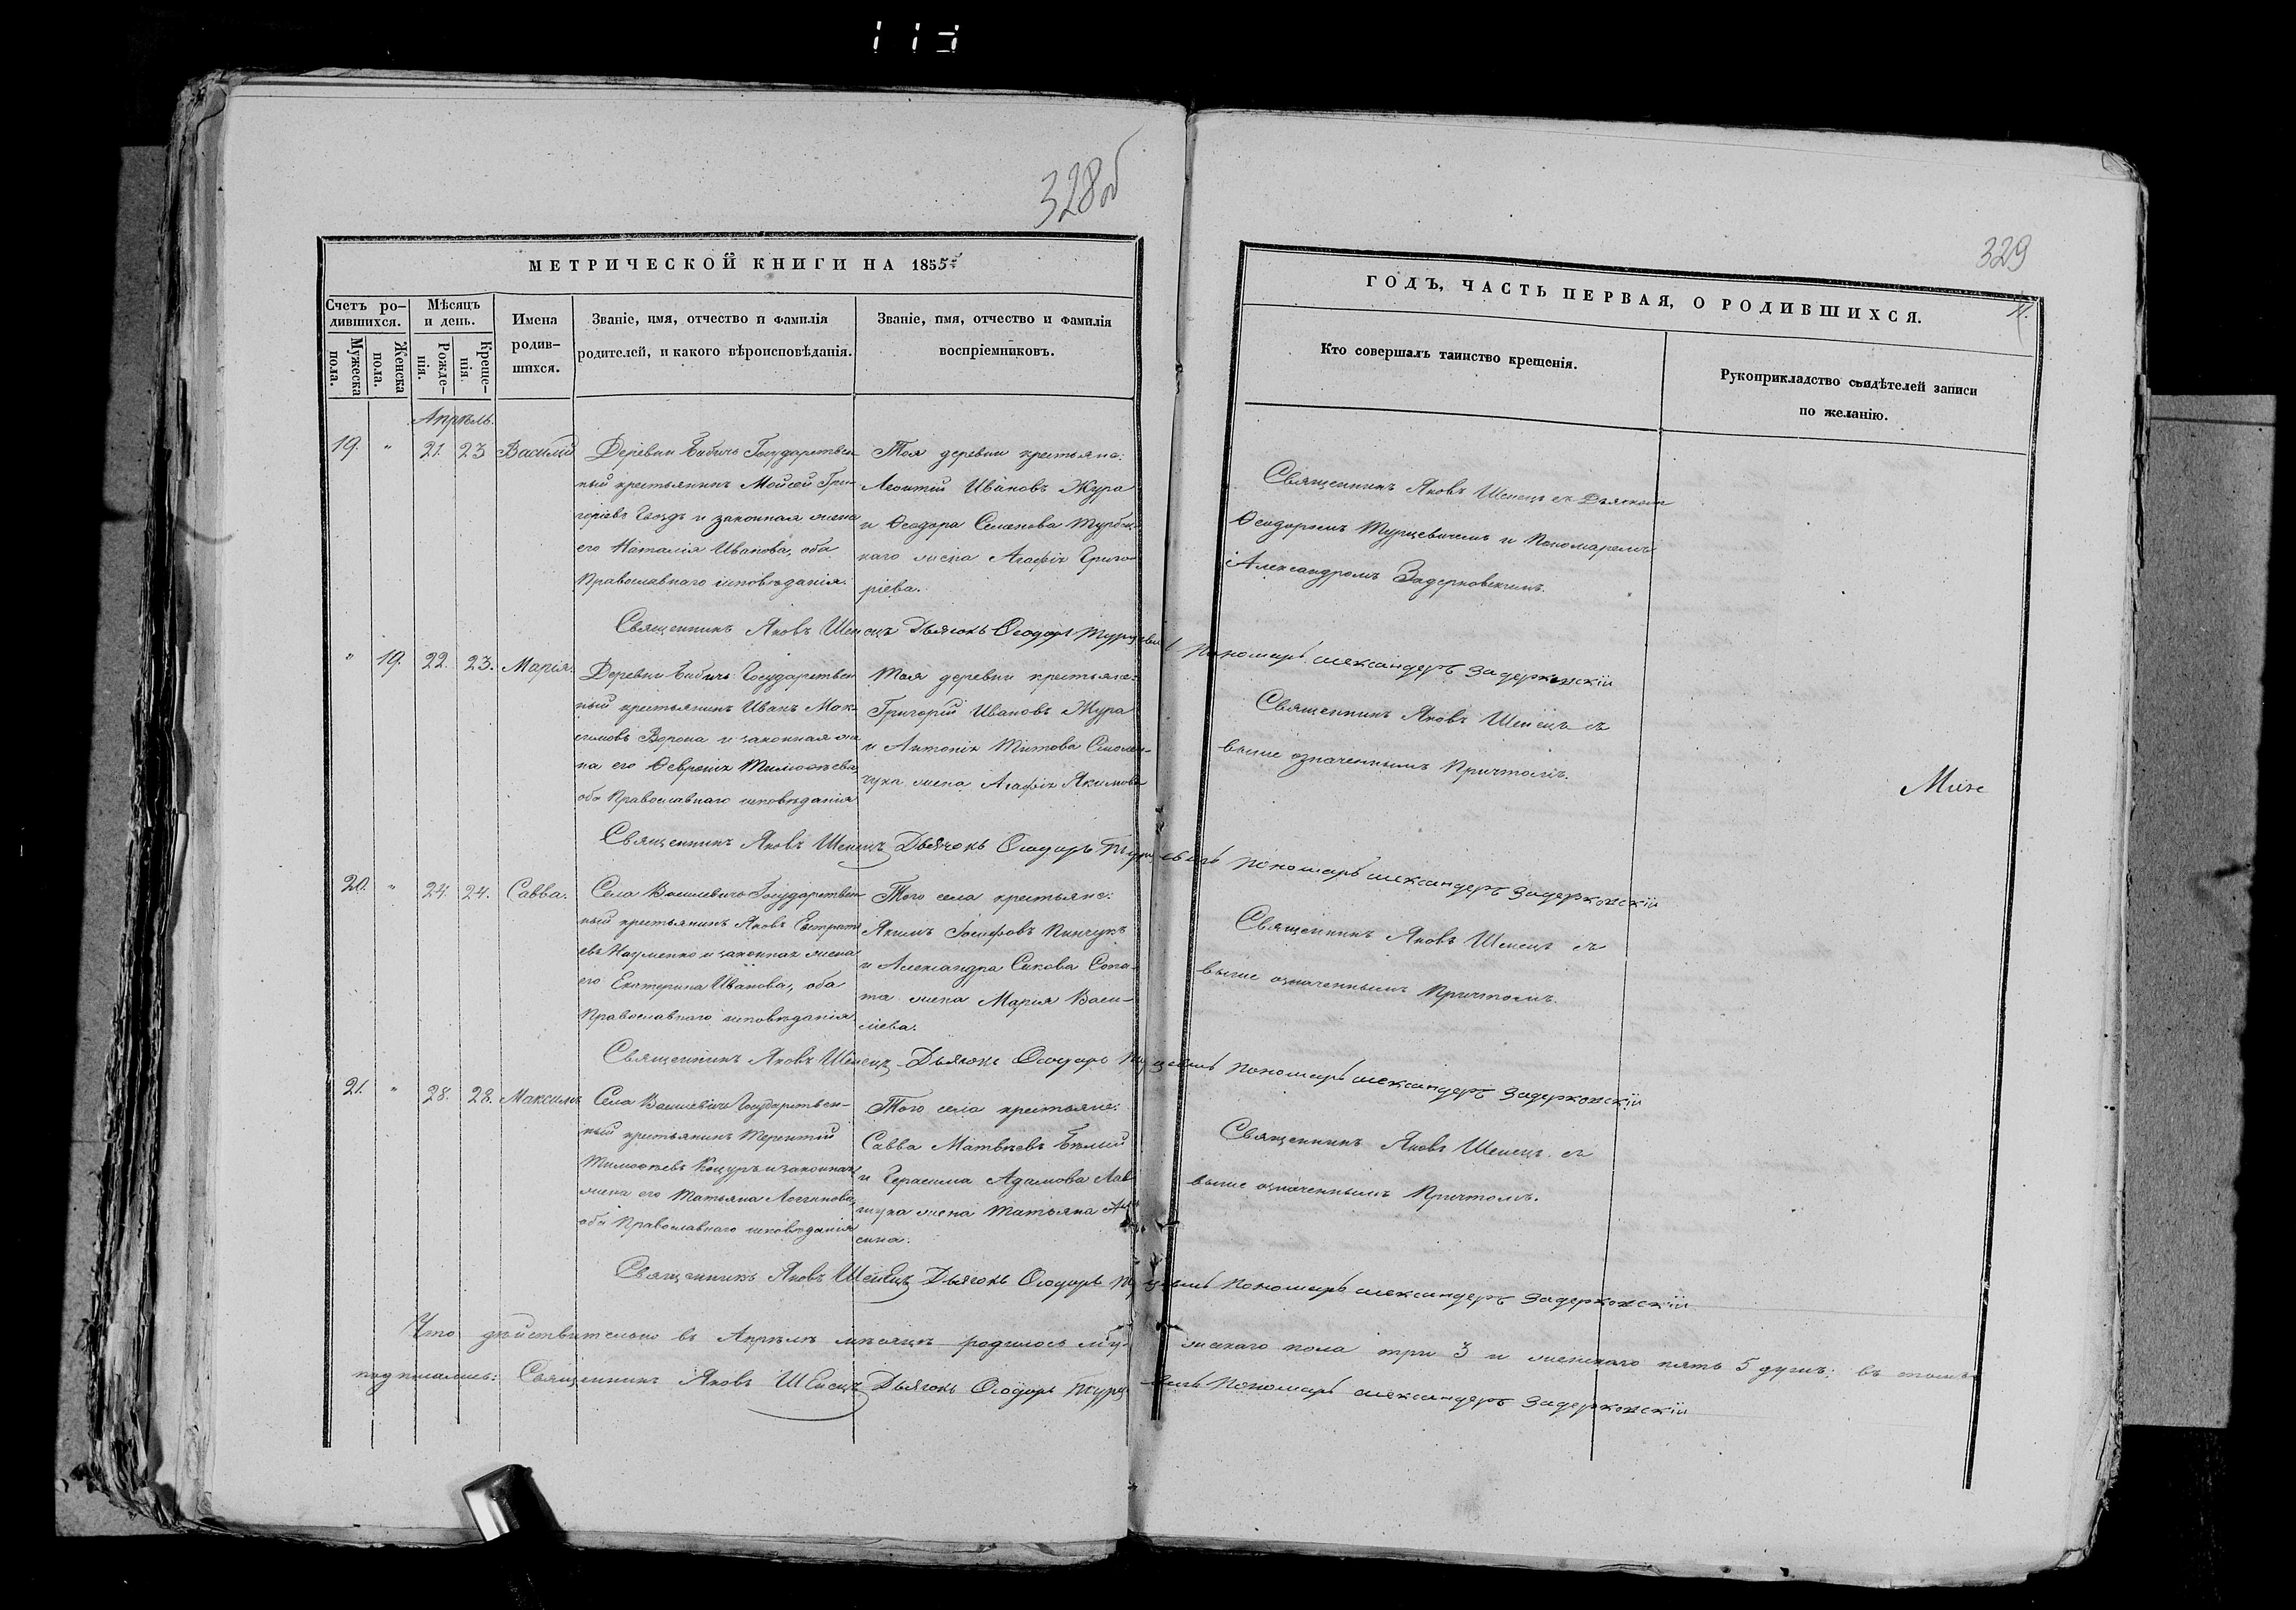 328об
329
11.
МЕТРИЧЕСКОЙ КНИГИ НА 1855й
ГОДЪ, ЧАСТЬ ПЕРВАЯ, О РОДИВШИХСЯ.
Счетъ ро-
дившихся.
Мужеска
пола.
Женска
пола.
Мѣсяцъ
и день.
Рожде-
нія.
Креще-
нія.
Имена
родив-
шихся.
Званіе, имя, отчество и фамилія
родителей, и какого вѣроисповѣданія.
Званіе, имя, отчество и фамилія
воспріемниковъ.
Кто совершалъ таинство крещенія.
Рукоприкладство свидѣтелей записи
по желанію.
Апрѣль.
19. " 21. 23 Василій
Деревни Государствен
ный крестьянинъ Мойсей Гри-
горіевъ и законная жена
его Наталія Иванова, оба
Православнаго исповѣданія.
Тоя деревни крестьяне:
Леонтій Ивановъ Жура
и Ѳеодора Семенова
жена Агафія Григо-
ріева.
Священникъ Яковъ Шепецъ съ Дьячкомъ
Ѳеодоромъ Турцевичемъ и Пономаремъ
Александромъ Задерковскимъ.
Священникъ Яковъ Шепецъ Дьячокъ Ѳеодоръ Турцевичъ Пономарь Александеръ Задерковскій
" 19. 22. 23. Марія.
Деревни Государствен
ный крестьянинъ Иванъ Мак-
симовъ Ворона и законная же
на его Ѳевронія Тимоѳѣева
оба Православнаго исповѣданія
Тоя деревни крестьяне:
Григорій Ивановъ Жура
и Антонія Титова Смолен-
чука жена Агафія Якимова
Священникъ Яковъ Шепецъ съ
выше означеннымъ Причтомъ.
Священникъ Яковъ Шепецъ Дьячокъ Ѳеодоръ Турцевичъ Пономарь Александеръ Задерковскій
20. " 24. 24. Савва.
Села Василевичъ Государствен
ный крестьянинъ Яковъ Евстраті
евъ Науменко и законная жена
его Екатерина Иванова, оба
Православнаго исповѣданія.
Того села крестьяне:
Якимъ Іосифовъ Пинчукъ
и Александра Сопо-
та жена Марія Васи-
лієва.
Священникъ Яковъ Шепецъ съ
выше означеннымъ Причтомъ.
Священникъ Яковъ Шепецъ Дьячокъ Ѳеодоръ Турцевичъ Пономарь Александеръ Задерковскій
21. " 28. 28. Максимъ
Села Василевичъ Государствен-
ный крестьянинъ Терентій
Тимоѳѣевъ Коцуръ и законная
жена его Татьяна Логинова,
оба Православнаго исповѣданія
Того села крестьяне:
Савва Матвѣевъ Бѣлый
и Герасима Адамова
жена Татьяна
Священникъ Яковъ Шепецъ съ
выше означеннымъ Причтомъ.
Священникъ Яковъ Шепецъ Дьячокъ Ѳеодоръ Турцевичъ Пономарь Александеръ Задерковскій
Что дѣйствительно въ Апрѣлѣ мѣсяцѣ родилось му- жескаго пола три 3 и женскаго пять 5 душъ: въ томъ
подписались: Священникъ Яковъ Шепецъ Дьячокъ Ѳеодоръ Турцевичъ Пономарь Александеръ Задерковскій